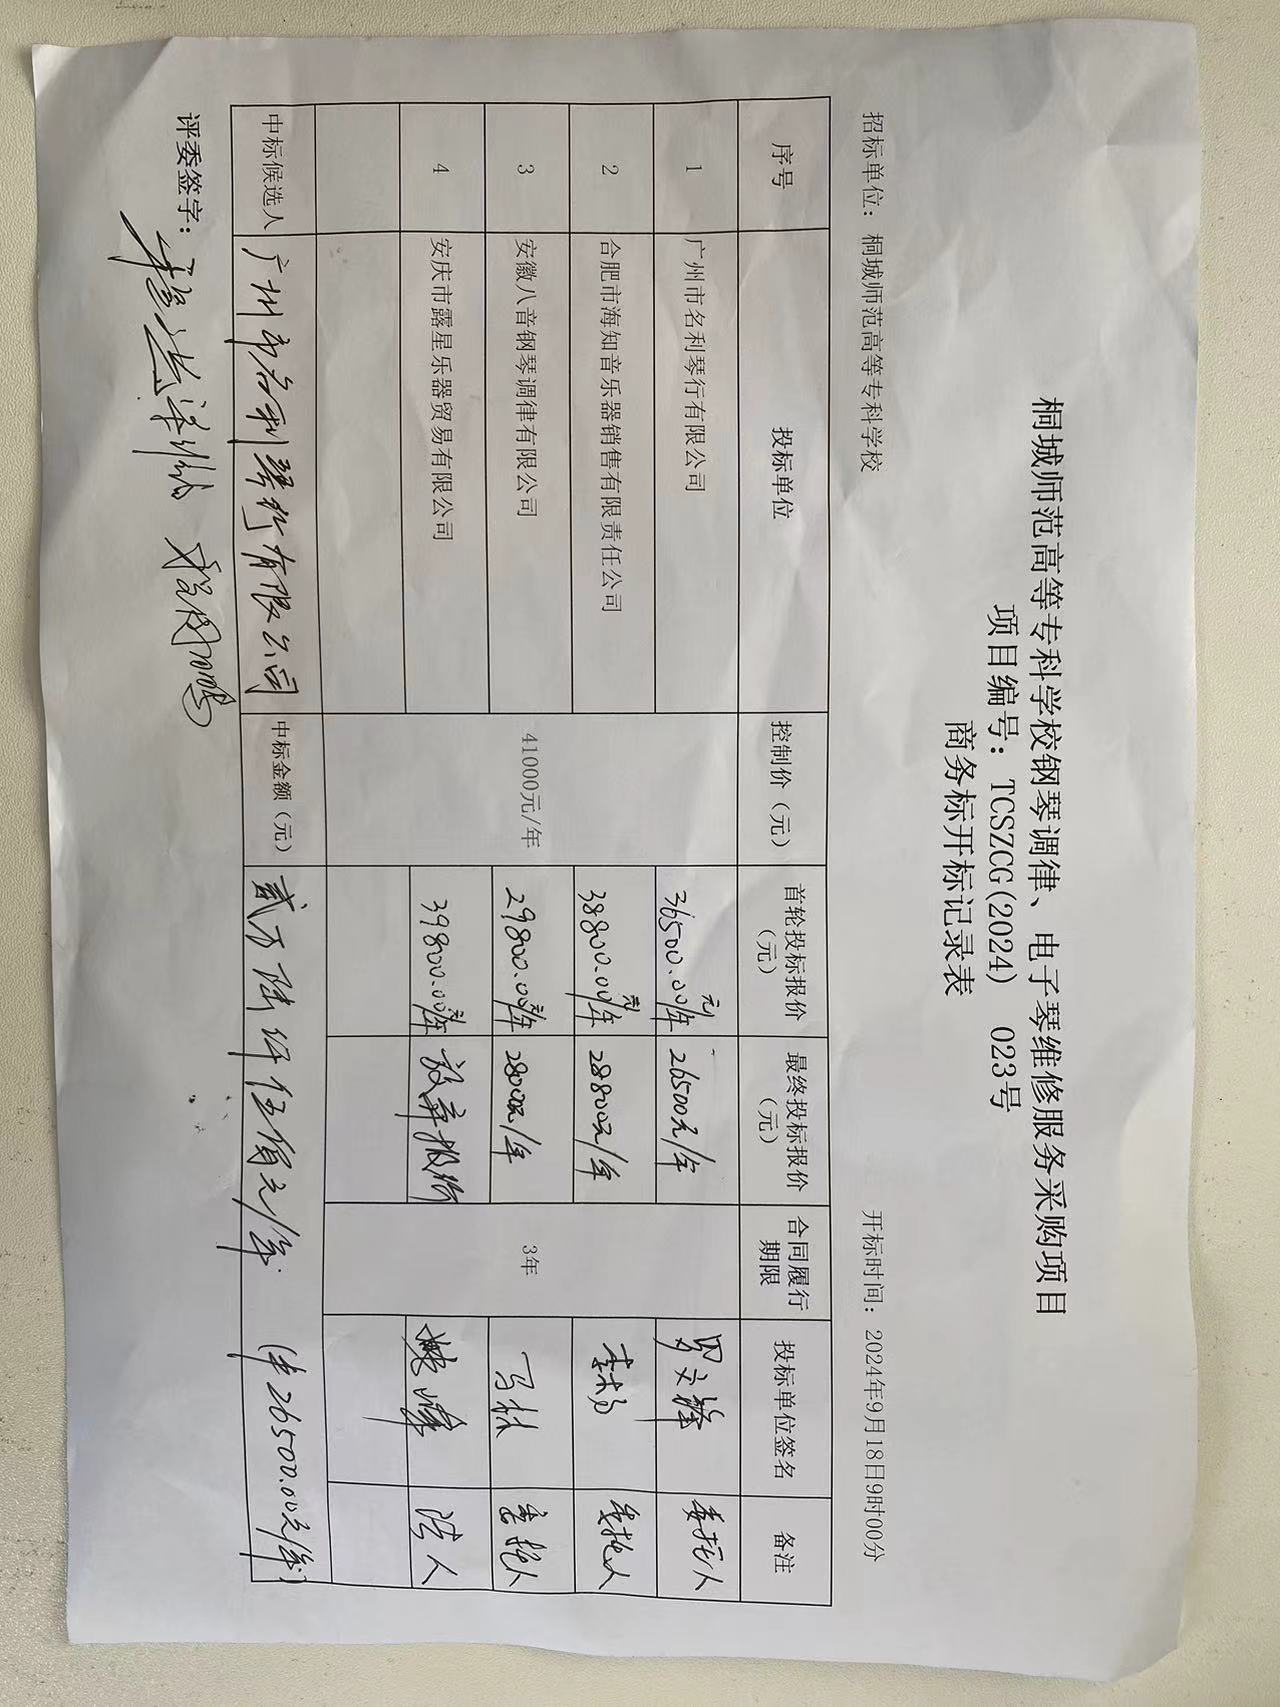 桐城师范高等专科学校钢琴调律、电子琴维修服务采购项目
项目编号：TCSZCG(2024) 023号
商务标开标记录表
招标单位：桐城师范高等专科学校 开标时间：2024年9月18日9时00分
序号 投标单位 控制价（元） 首轮投标报价（元） 最终投标报价（元） 合同履行期限 投标单位签名 备注
1 广州市名利琴行有限公司 36500.00元/年 26500元/年 委托人
2 合肥市海知音乐器销售有限责任公司 38800.00元/年 28800元/年 委托人
3 安徽八音钢琴调律有限公司 41000元/年 29800.00元/年 28000元/年 3年 马林 委托人
4 安庆市露星乐器贸易有限公司 39800.00元/年 放弃报价 法人
中标候选人 广州市名利琴行有限公司 中标金额（元） 贰万陆仟伍佰元/年 (¥26500.00元/年)
评委签字：